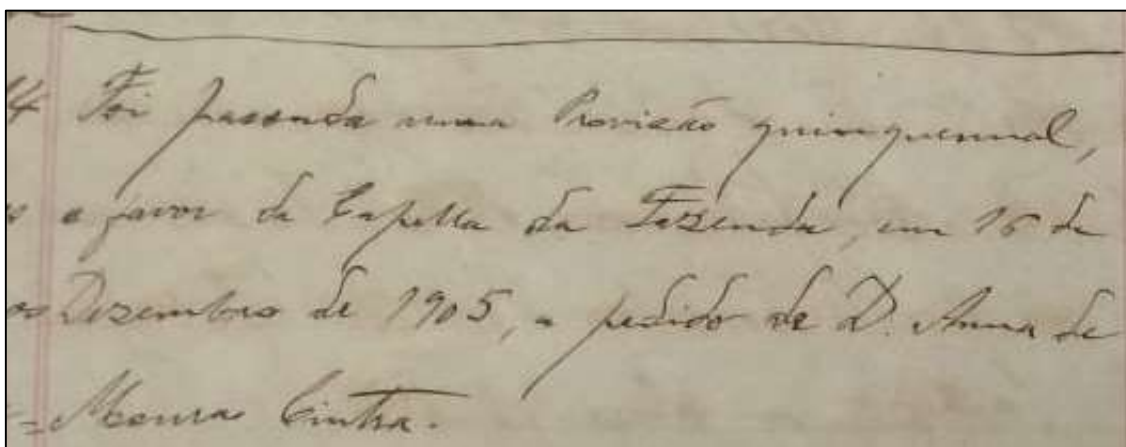 4 Foi passada uma Provizão quinquennal,
a favor da Capella da Fazenda, em 16 de
os Dezembro de 1905, a pedido de D. Anna de
= Moura Cintra.